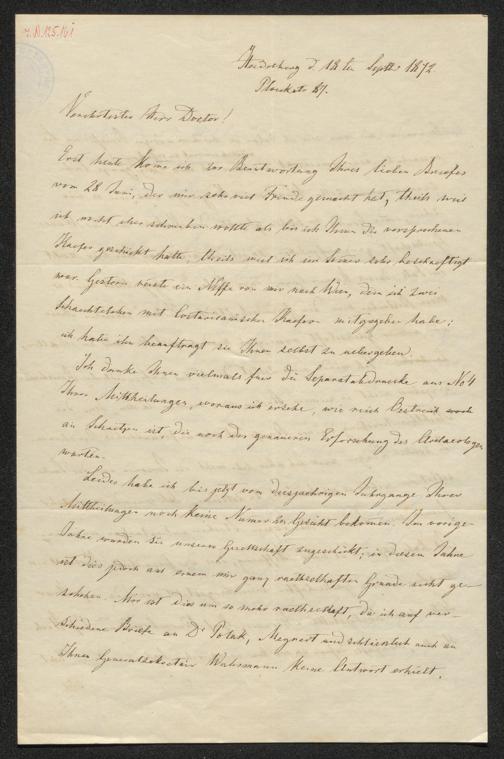 Heidelberg d. 18ten Septbr 1872.
Plöckstr 87.
Verehrtester Herr Doctor!
Erst heute komme ich zur Beantwortung Ihres lieben Briefes
vom 28 Juni, der mir sehr viel Freude gemacht hat, theils weil
ich nicht eher schreiben wollte als bis ich Ihnen die versprochenen
Kaefer geschickt hatte, theils weil ich im Seminar sehr beschaeftigt
war. Gestern reiste ein Neffe von mir nach Wien, dem ich zwei
Schachtelchen mit Costaricanischen Kaefern mitgegeben habe;
ich habe ihn beauftragt sie Ihnen selbst zu uebergeben.
Ich danke Ihnen vielmals fuer die Separatabdruecke aus No 4
Ihrer Mittheilungen, woraus ich ersehe, wie reich Oestreich noch
an Schaetzen ist, die noch der genaueren Erforschung des Archaeologen
warten.
Leider habe ich bis jetzt vom diesjaehrigen Jahrgange Ihrer
Mittheilungen noch keine Nummer zu Gesicht bekommen. Im vorigen
Jahre wurden sie unserer Gesellschaft zugeschickt; in diesem Jahre
ist dies jedoch aus einem mir ganz raethselhaften Grunde nicht ge-
schehen. Mir ist dies um so mehr raethselhaft, da ich auf ver-
schiedene Briefe an Dr Polak, Meynert und schliesslich auch an
Ihren Generalsekretair Wahrmann keine Antwort erhielt.